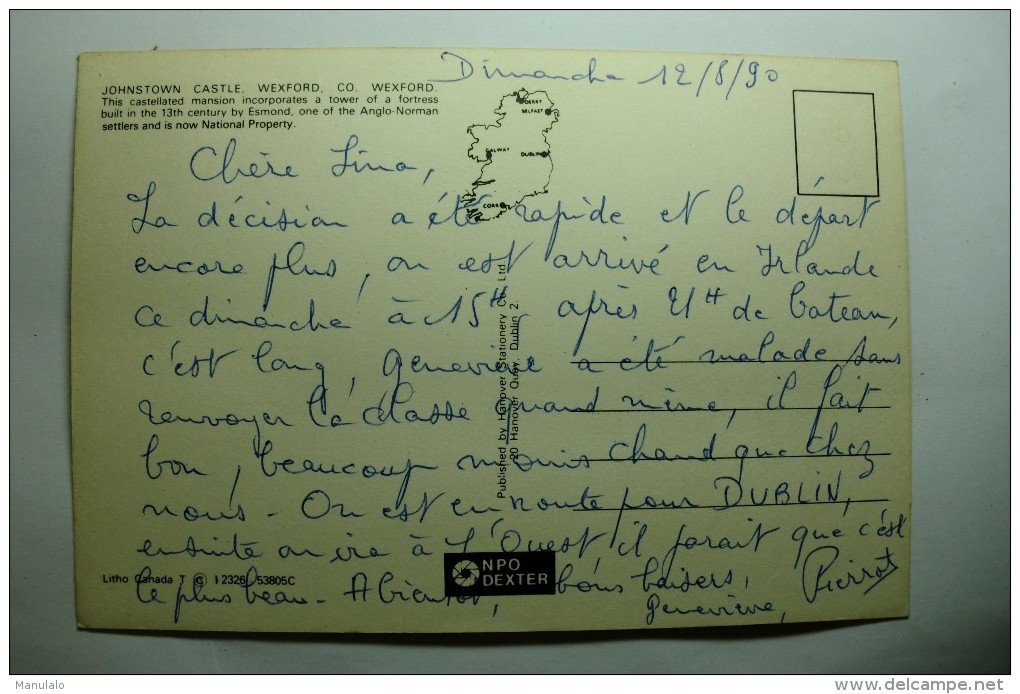 Dimanche 12/8/90
JOHNSTOWN CASTLE, WEXFORD, CO. WEXFORD.
This castellated mansion incorporates a tower of a fortress
built in the 13th century by Esmond, one of the Anglo-Norman
settlers and is now National Property.
DERRY
BELFAST
GALWAY
DUBLIN
CORK
Chère Lina,
La décision a été rapide et le départ
encore plus, on est arrivé en Irlande
ce dimanche à 15H après 21H de bateau,
c'est long, Geneviève a été malade sans
renvoyer la classe quand même, il fait
bon, beaucoup moins chaud que chez
nous - On est en route pour DUBLIN,
ensuite on ira à L'Ouest il parait que c'est
le plus beau - A bientôt, bons baisers,
Geneviève, Pierrot
Published by Hanover Stationery Co., Ltd.
20 Hanover Quay, Dublin 2
Litho Canada T © I 2326 53805C
NPO
DEXTER
Manulalo
www.delcampe.net